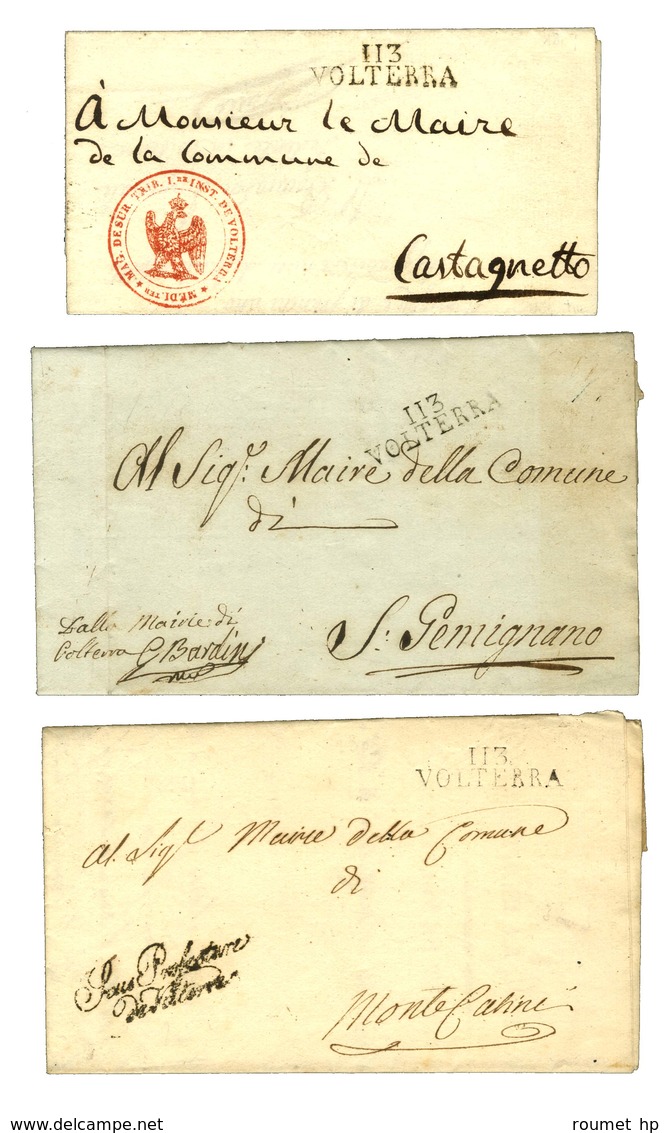 113
VOLTERRA
À Monsieur le Maire
de la Commune de
MAG. DE SUR. TRIB. I.RE INST. DE VOLTERRA ★ MÉDI.TER ★
Castagnetto
113
VOLTERRA
Al Sigr. Maire della Comune
di
Dalla Mairie di
Volterra G Bardini
S: Gemignano
113
VOLTERRA
Al. Sigr Maire della Comune
di
Sous Prefecture
de Volterra
Monte Catini
www.delcampe.net
roumet hp